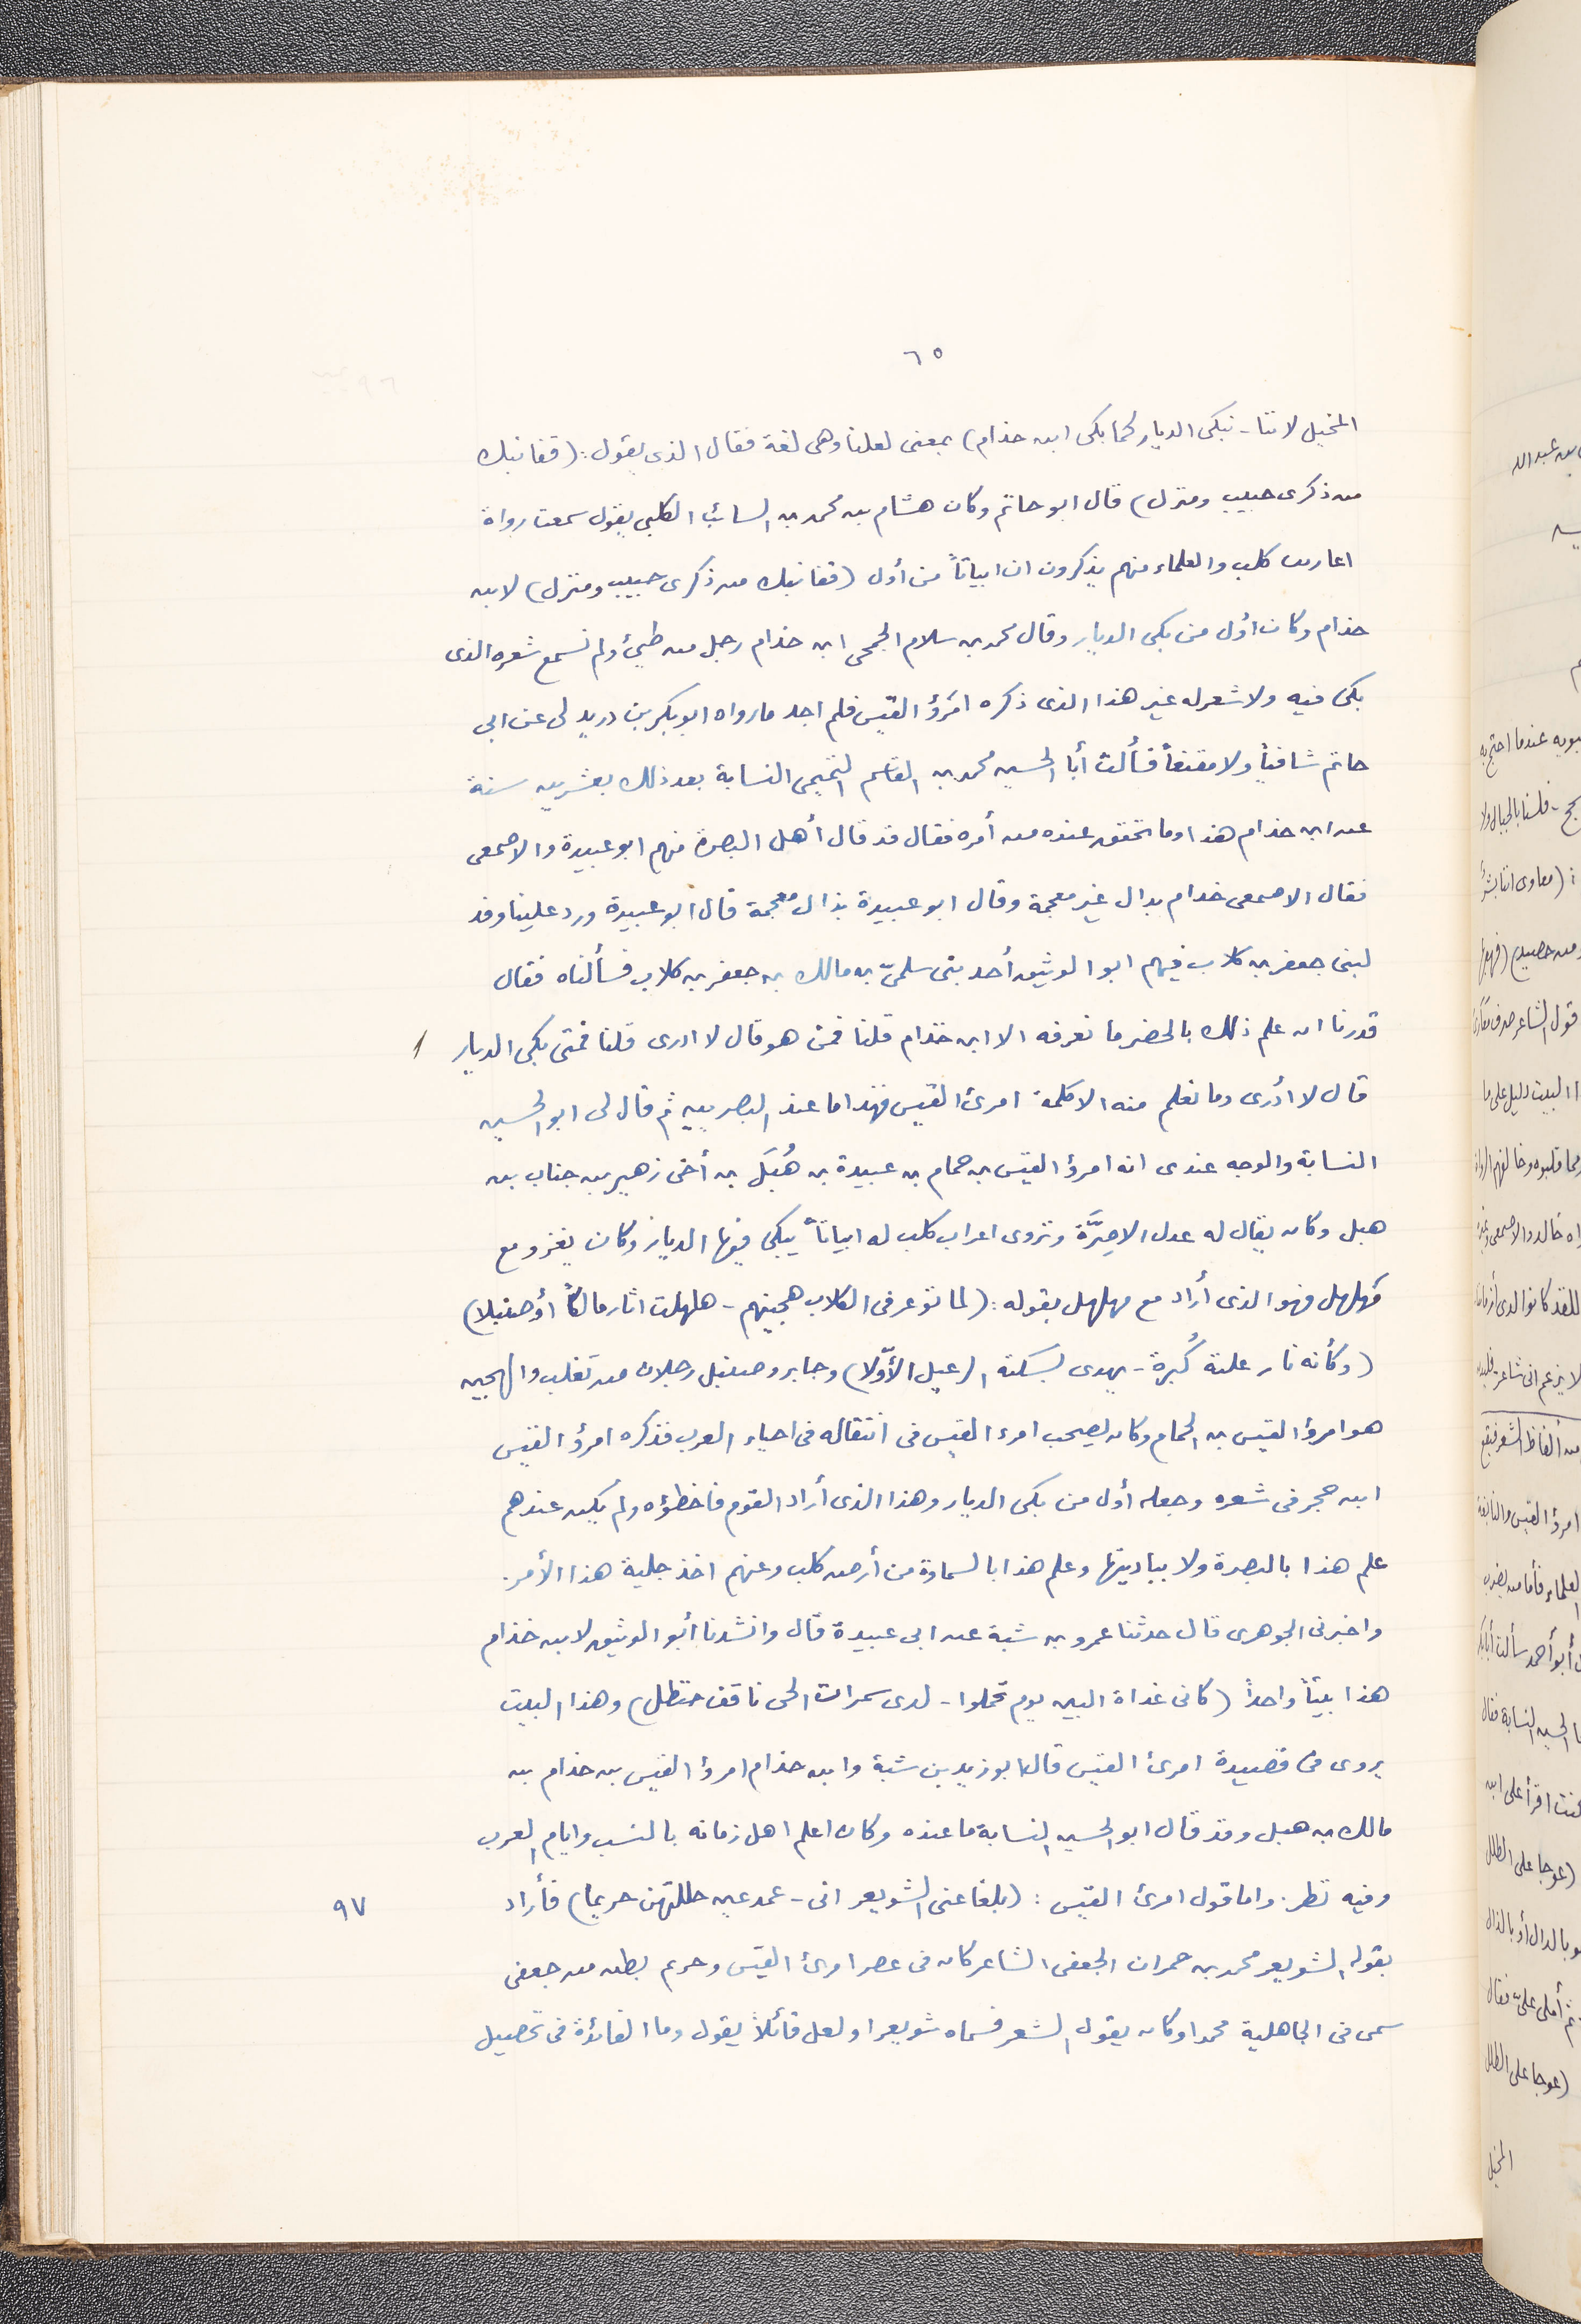 ٦٥
المخيل لاننا - نبكى الديار كما بكى ابن حذام) بمعنى لعلنا وهى لغة فقال الذى يقول: (قفا نبك
من ذكرى حبيب ومنزل) قال ابو حاتم وكان هشام بن محمد بن السائب الكلبي يقول سمعت رواة
اعاريب كلب والعلماء منهم يذكرون ان ابياتاً من أول (قفا نبك من ذكرى حبيب ومنزل) لابن
حذام وكان اول من بكى الديار وقال محمد بن سلام الجمحى ابن خذام رجل من طيئ ولم نسمع شعره الذى
بكى فيه ولا شعر له غير هذا الذى ذكره امرؤ القيس فلم اجد ما رواه ابو بكر بن دريد لى عن ابى
حاتم شافياً ولا مقنعاً فسألت أبا الحسين محمد بن القاسم التميمى النسابة بعد ذلك بعشرين سنة
عن ابن خذام هذا وما تحقق عنده من أمره فقال قد قال أهل البصرة منهم ابو عبيدة والاصمعى
فقال الاصمعى خدام بدال غير معجمة وقال ابو عبيدة بذال معجمة قال ابو عبيدة ورد علينا وفد
لبنى جعفر بن كلاب فيهم ابو الوثيق أحد بنى سلمىّ بن مالك بن جعفر بن كلاب فسألناه فقال
قدرنا ان علم ذلك بالحضر ما نعرفه الا ابن خذام قلنا فمن هو قال لا ادرى قلنا فمتى بكى الديار
قال لا أدرى وما نعلم منه الا كلمة امرئ القيس فهذا ما عند البصريين ثم قال لى ابو الحسين
النسابة والوجه عندى انه امرؤ القيس بن حمام بن عبيدة بن هُبَل بن أخى زهير بن جناب بن
هبل وكان يقال له عدل الاصِرَّة وتروى اعراب كلب له ابياتاً يبكى فيها الديار وكان يغزو مع
مُهلهل فهو الذى أراد مع مهلهل بقوله: (لما توعر فى الكلاب هجينهم - هلهلت اثار مالكاً أو صنبلا)
(وكأنه نار علته كُبرة - يهدى بسكته الرعيل الأوّلا) وجابر وصنبل رجلان من تغلب والهجين
هو امرؤ القيس بن الحمام وكان يصحب امرء القيس فى انتقاله فى احياء العرب فذكره امرؤ القيس
ابن حجر فى شعره وجعله أول من بكى الديار وهذا الذى أراد القوم فاخطؤه ولم يكن عندهم
علم هذا بالبصرة ولا بباديتها وعلم هذا بالسماوة من أرض كلب وعنهم اخذ جلية هذا الأمر.
واخبرنى الجوهرى قال حدثنا عمرو بن شبة عن ابى عبيدة قال وانشدنا أبو الوثيق لابن خذام
هذا بيتاً واحداً (كانى غداة البين يوم تحملوا - لدى سمرات الحى ناقف حنظل) وهذا البيت
يروى فى قصيدة امرئ القيس قال ابو زيد بن شبة وابن حذام امرؤ القيس بن حذام بن
مالك بن هبل وقد قال ابو الحسين النسابة ما عنده وكان اعلم اهل زمانه بالنسب وايام العرب
وفيه نظر. واما قول امرئ القيس: (بلغا عنى الشويعر انى - عمد عين حللتهن حريما) فأراد
٩٧
بقوله الشويعر محمد بن حمران الجعفى الشاعر كان فى عصر امرئ القيس وحريم بطن من جعفى
سمى فى الجاهلية محمدا وكان يقول الشعر فسماه شويعرا ولعل قائلاً يقول وما الفائدة فى تحصيل